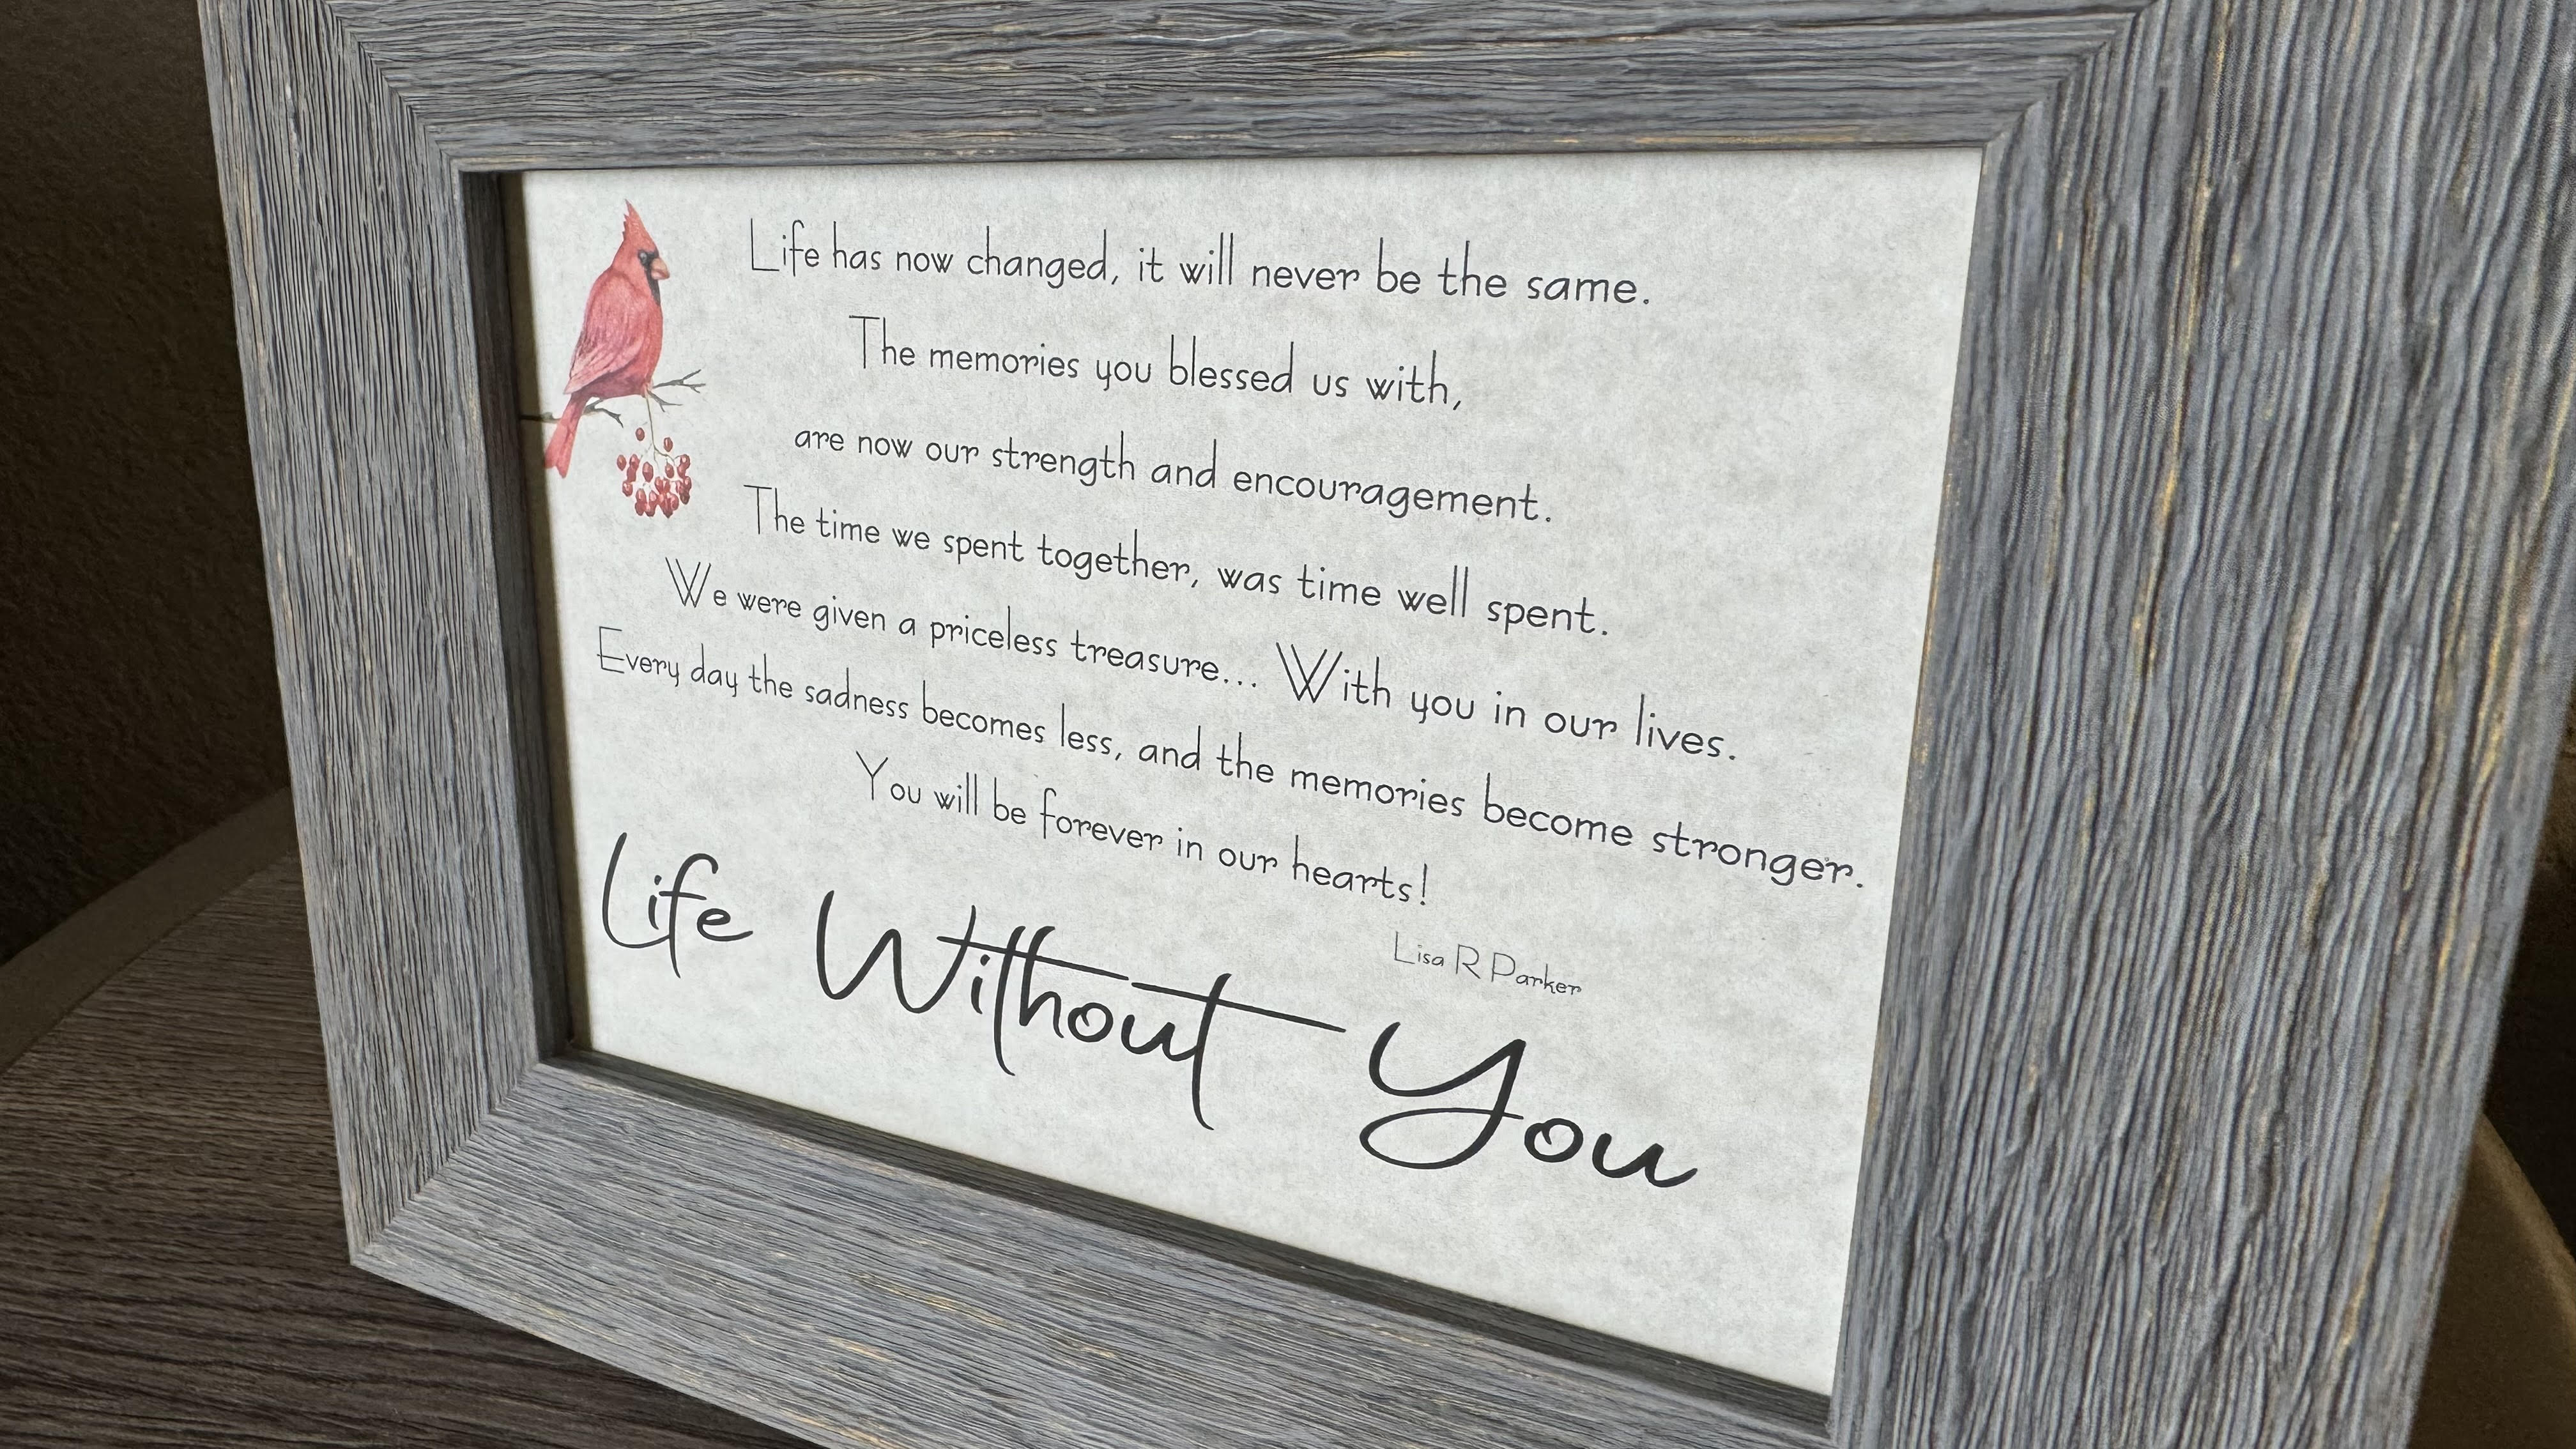 Life has now changed, it will never be the same.
The memories you blessed us with,
are now our strength and encouragement.
The time we spent together, was time well spent.
We were given a priceless treasure... With you in our lives.
Every day the sadness becomes less, and the memories become stronger.
You will be forever in our hearts!
Lisa R Parker
Life Without You